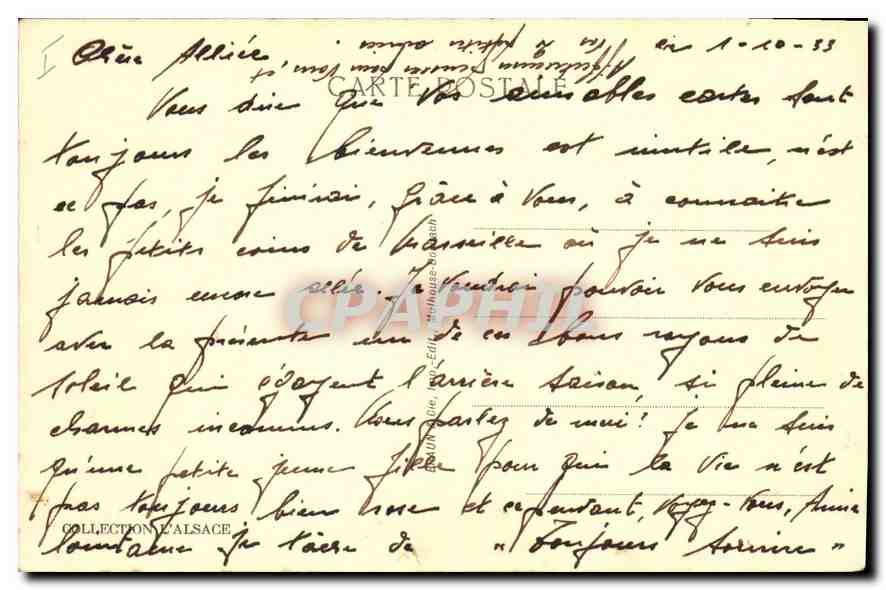 Chère Alliée ce 1-10-33
CARTE POSTALE
Vous dire que vos aimables cartes sont
toujours les bienvenues est inutile, n'est
ce pas, je finirai, grâce à vous, à connaître
les petits coins de Marseille où je ne suis
jamais encore allée. Je voudrais pouvoir vous envoyer
avec la présente un de ces bons rayons de
soleil qui égayent l'arrière saison, si pleine de
charmes inconnus. Vous parlez de moi! je ne suis
qu'une petite jeune fille pour qui la vie n'est
pas toujours bien rose et cependant, voyez-vous, Amie
lointaine je tâche de "Toujours sourire"
pensées pour vous, et
vos 2 petites amies.
BRAUN & Cie, Imp.-Edit., Mulhouse-Dornach
COLLECTION L'ALSACE
CPAPHIL